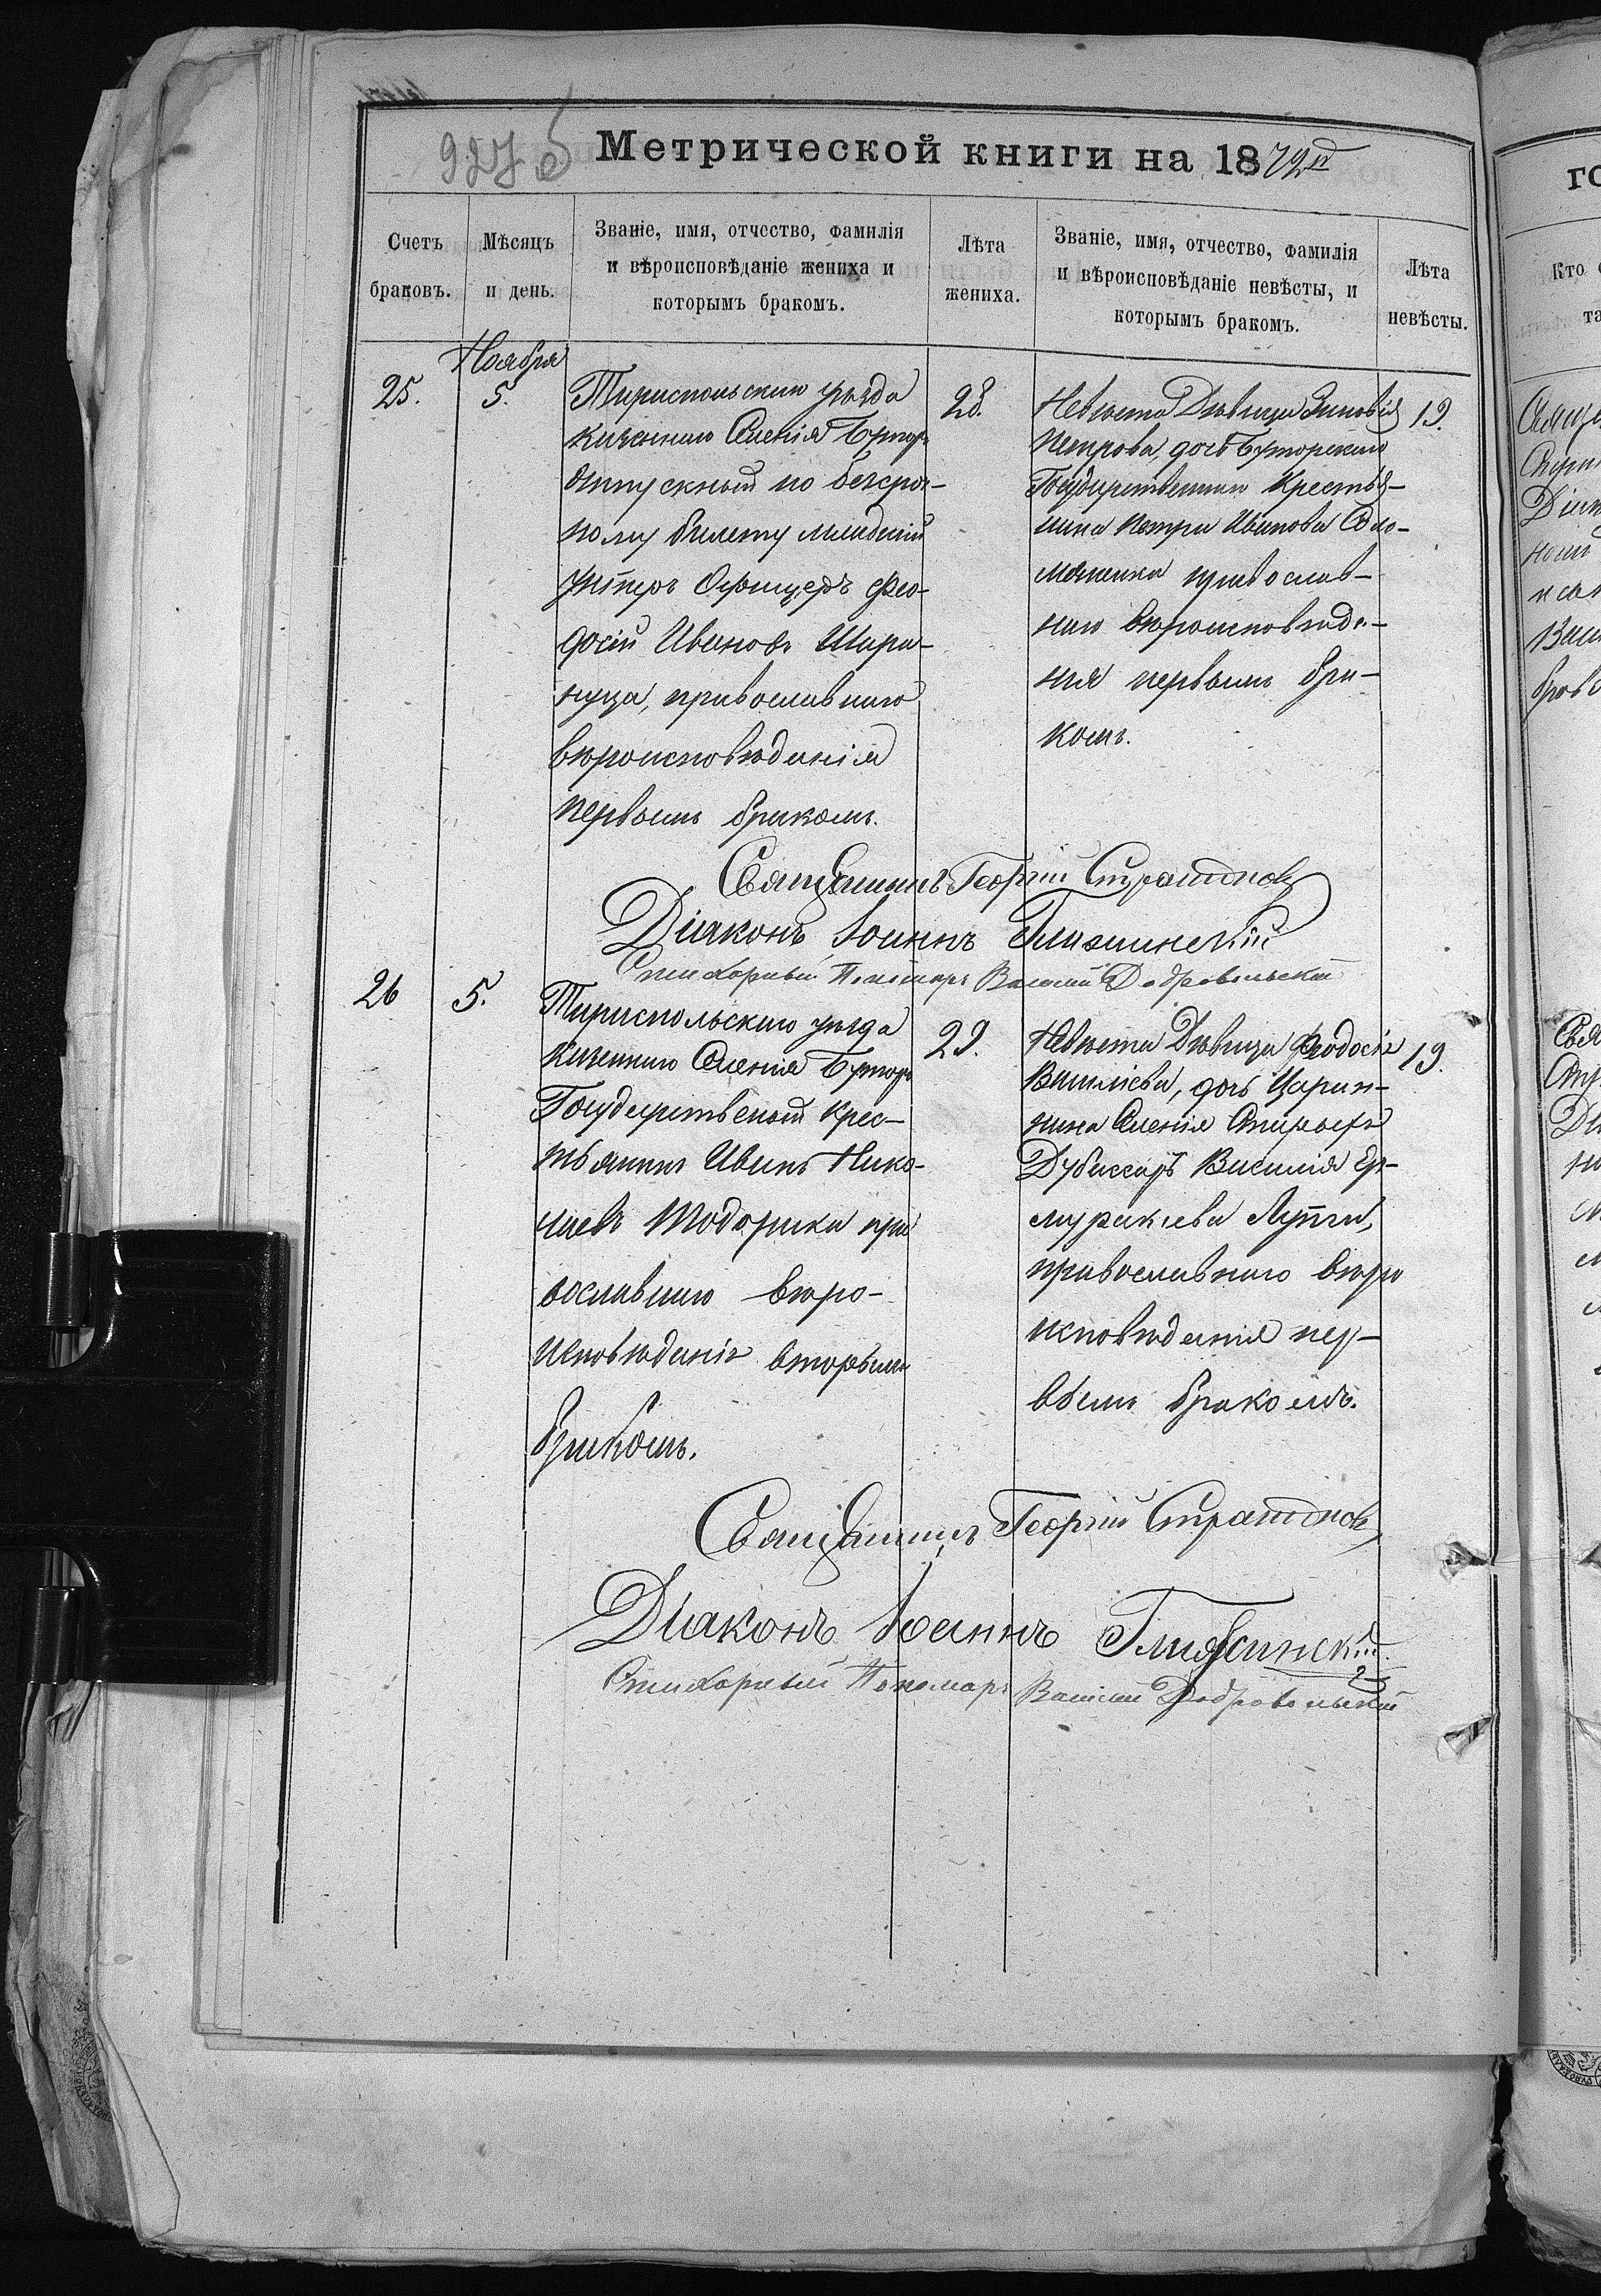 927 б
Метрической книги на 1879й
Счетъ браковъ.
Мѣсяцъ и день.
Званіе, имя, отчество, фамилія
и вѣроисповѣданіе жениха и
которымъ бракомъ.
Лѣта жениха.
Званіе, имя, отчество, фамилія
и вѣроисповѣданіе невѣсты, и
которымъ бракомъ.
Лѣта невѣсты.
25.
Ноября
5.
Тираспольскаго уѣзда
казеннаго Селенія Буторъ
Отпускный по безсроч-
ному билету младшій
Унтеръ Офицеръ Фео-
досій Ивановъ Шара-
нуца, православнаго
вѣроисповѣданія
первымъ бракомъ.
28.
Невѣста Дѣвица Зиновія
Петрова, дочь Буторскаго
Государственнаго Крестья-
нина Петра Иванова Соло-
православ-
наго вѣроисповѣда-
нія первымъ бра-
комъ.
19.
Священникъ Георгій
Діаконъ Іоаннъ
Стихарный Пономарь Василій Добровольскій
26
5.
Тираспольскаго уѣзда
казеннаго Селенія Буторъ
Государственный Крес-
тьянинъ Иванъ Нико-
лаевъ Тодорика пра
вославнаго вѣро-
исповѣданія вторымъ
бракомъ.
29.
Невѣста Дѣвица Феодосія
Василіева, дочь Царян-
нина Селенія Старыхъ
Дубоссаръ Василія Ер-
Лупги,
православнаго вѣро
исповѣданія пер-
вымъ бракомъ.
19.
Священникъ Георгій
Діаконъ Іоаннъ
Стихарный Пономарь Василій Добровольскій
го
Кто